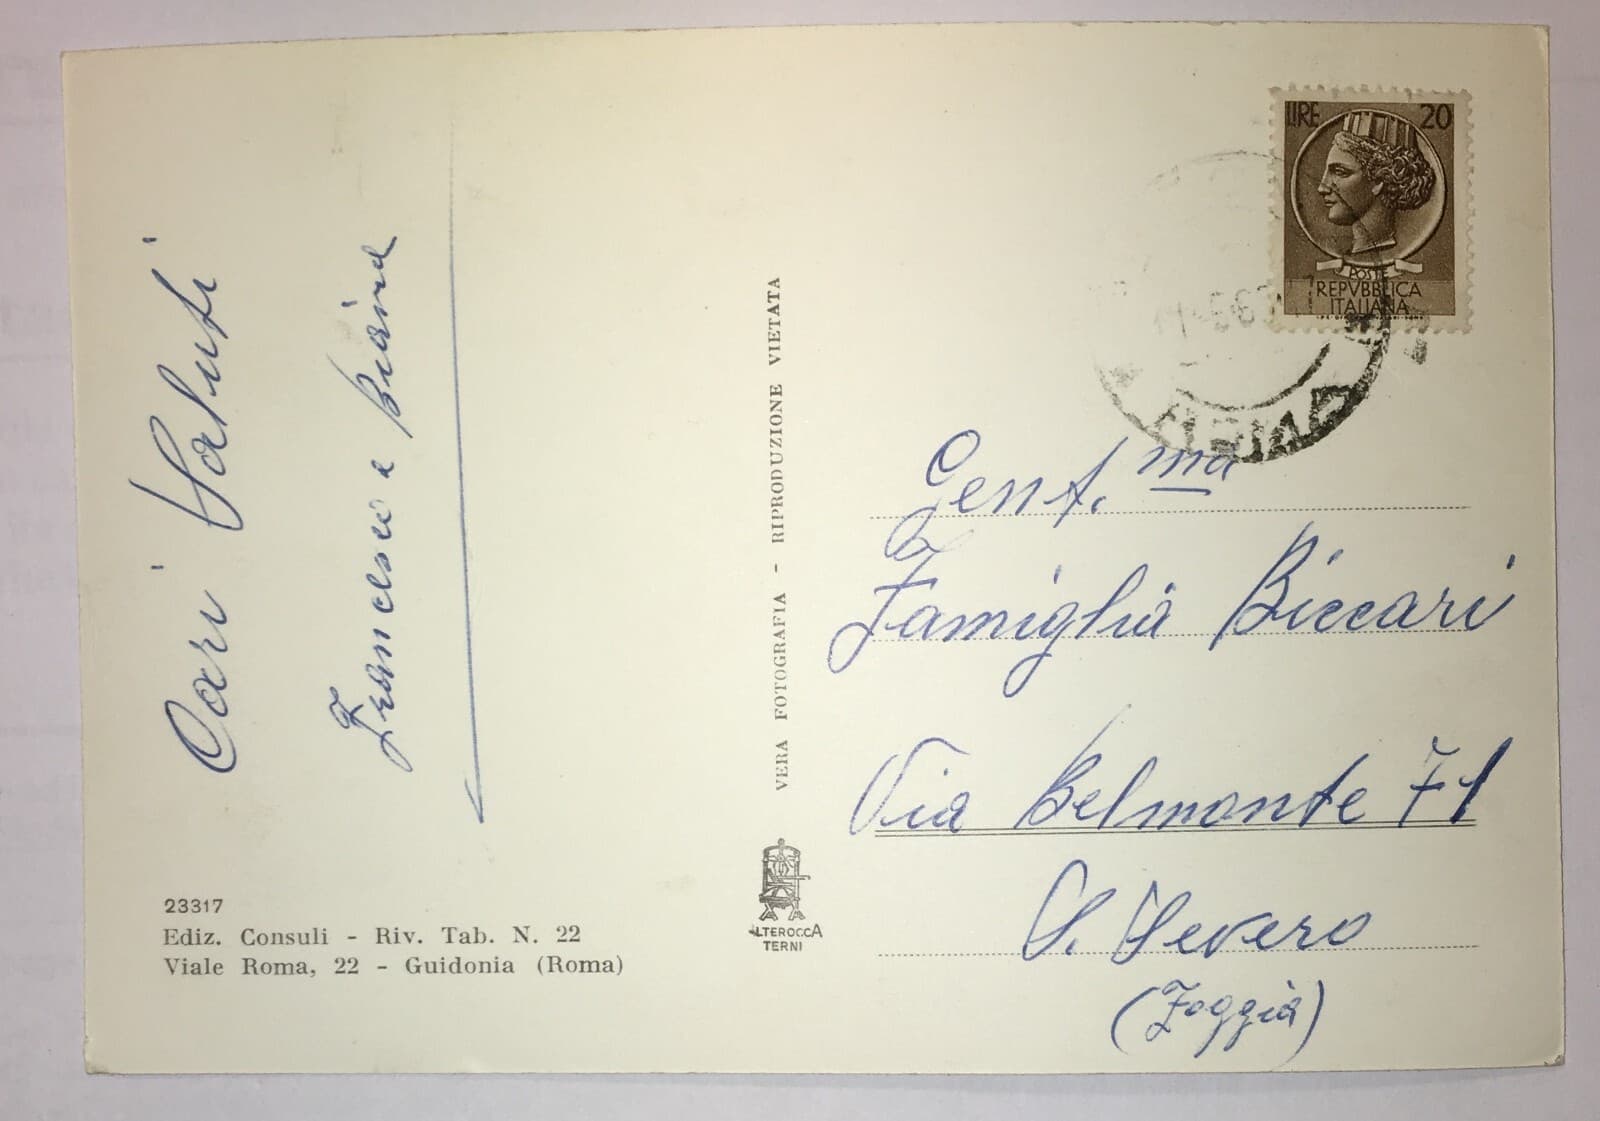 Cari Saluti
Francesco e
23317
Ediz. Consuli - Riv. Tab. N. 22
Viale Roma, 22 - Guidonia (Roma)
VERA FOTOGRAFIA - RIPRODUZIONE VIETATA
ALTEROCCA
TERNI
LIRE 20
POSTE
REPVBBLICA
ITALIANA
Gent.ma
Famiglia Biccari
Via Belmonte 71
S. Severo
(Foggia)